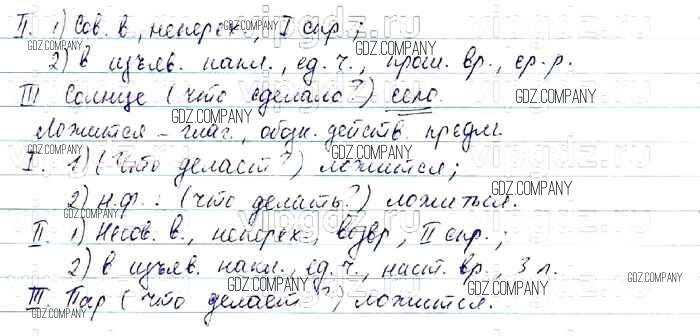 II. 1) Сов. в., неперех., I спр.;
2) в изъяв. накл., ед. ч., прош. вр., ср. р.
III Солнце (что сделало?) село.
Ложится – глаг., обозн. действ. предм.
I. 1) (Что делает?) ложится;
2) н.ф.: (что делать?) ложиться.
II. 1) Несов. в., неперех., возвр., II спр.;
2) в изъяв. накл., ед. ч., наст. вр., 3 л.
III. Пар (что делает?) ложится.